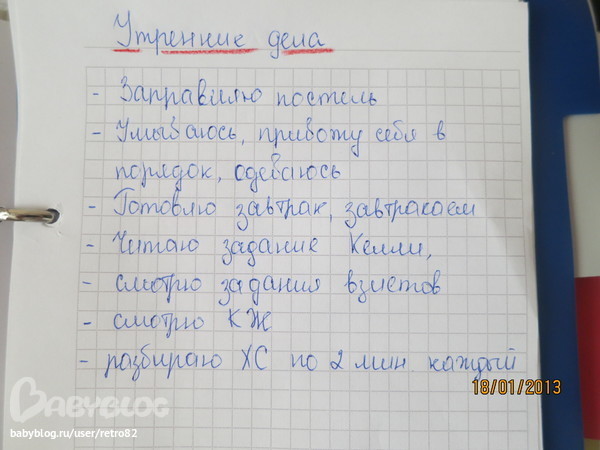 Утренние дела
- Заправляю постель
- Умываюсь, привожу себя в
порядок, одеваюсь
- Готовлю завтрак, завтракаем
- Читаю задание Келли,
- смотрю задания взлетов
- смотрю КЖ
- разбираю ХС по 2 мин каждый
18/01/2013
BABYBLOG
babyblog.ru/user/retro82